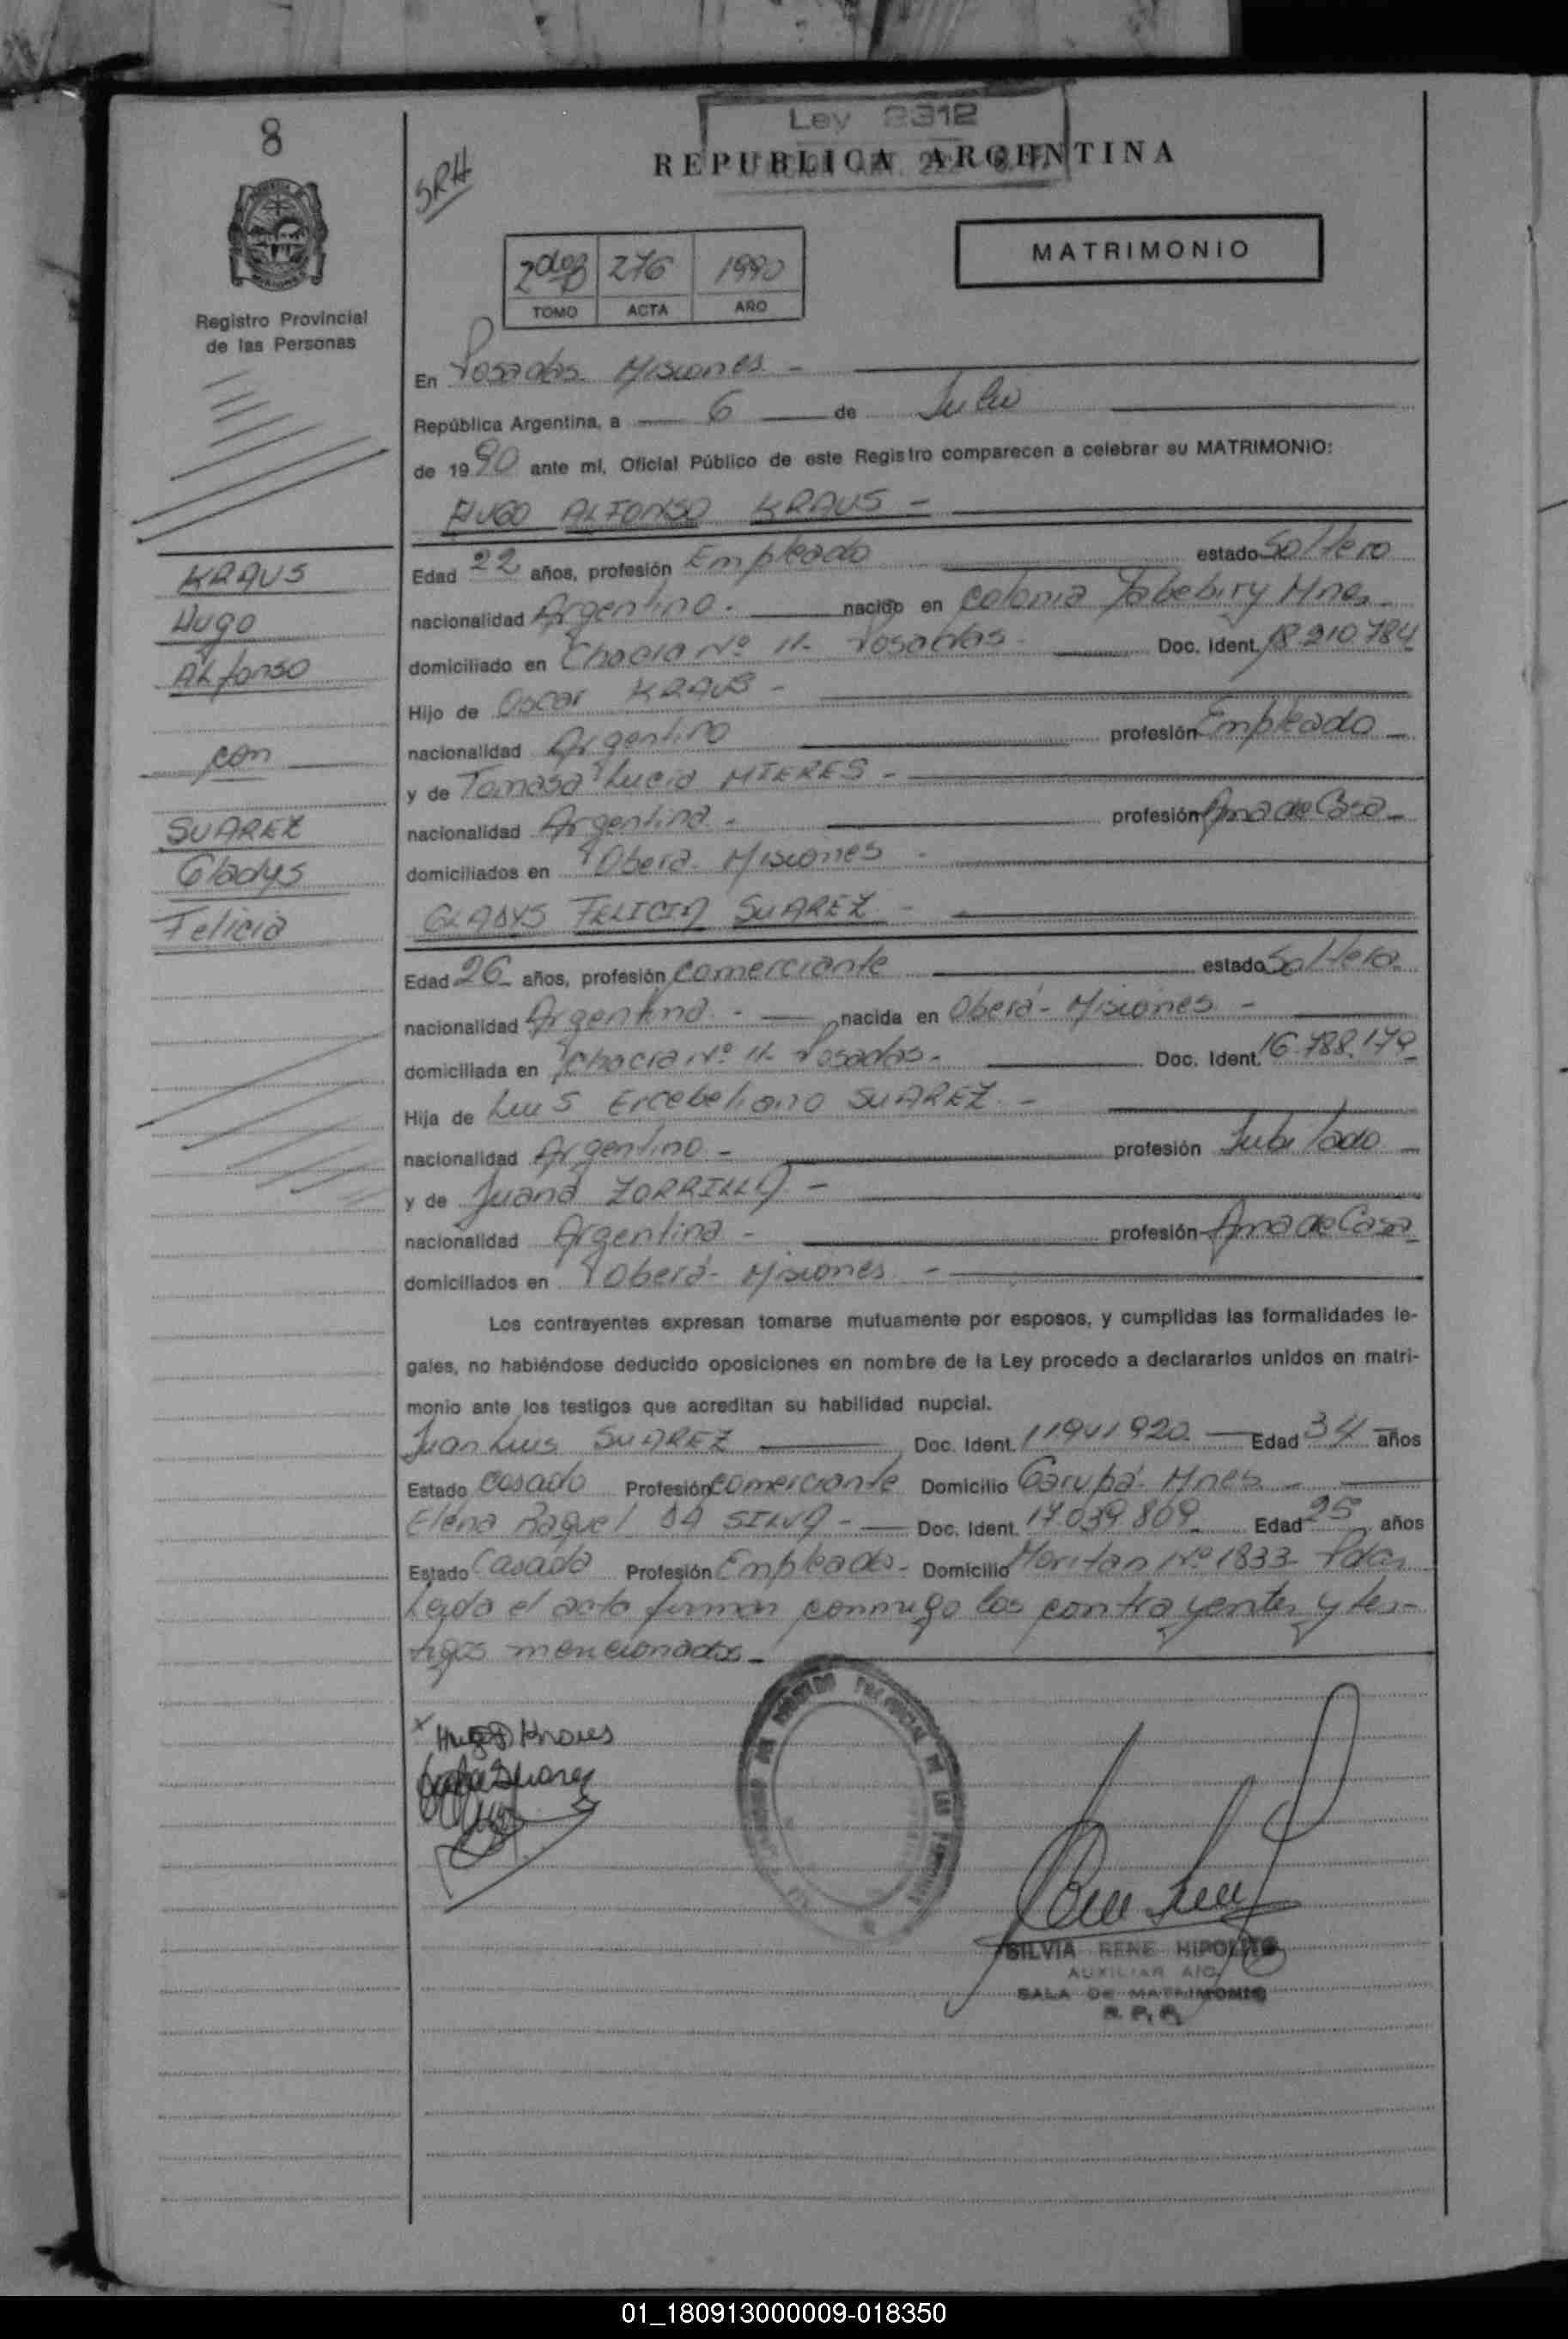 8
SRH
Ley 2312
REPUBLICA ARGENTINA
MATRIMONIO
276 1990
TOMO ACTA AÑO
Registro Provincial
de las Personas
En Posadas Misiones -
República Argentina, a 6 de Julio
de 1990 ante mí, Oficial Público de este Registro comparecen a celebrar su MATRIMONIO:
HUGO ALFONSO KRAUS -
KRAUS
Hugo
Alfonso
con
SUAREZ
Gladys
Felicia
Edad 22 años, profesión Empleado estado Soltero
nacionalidad Argentino. nacido en Colonia Yabebiry Mnes.
domiciliado en Chacra Nº 11- Posadas. Doc. Ident. 18.210.784
Hijo de Oscar KRAUS -
nacionalidad Argentino profesión Empleado -
y de Tomasa Lucia MIERES -
nacionalidad Argentina - profesión Ama de Casa -
domiciliados en Oberá - Misiones -
GLADYS FELICIA SUAREZ -
Edad 26 años, profesión comerciante estado Soltera
nacionalidad Argentina - nacida en Oberá - Misiones -
domiciliada en Chacra Nº 11- Posadas - Doc. Ident. 16.788.179
Hija de Luis Ercebeliano SUAREZ -
nacionalidad Argentino - profesión Jubilado -
y de Juana ZORRILLA -
nacionalidad Argentina - profesión Ama de Casa
domiciliados en Oberá - Misiones -
Los contrayentes expresan tomarse mutuamente por esposos, y cumplidas las formalidades le-
gales, no habiéndose deducido oposiciones en nombre de la Ley procedo a declararlos unidos en matri-
monio ante los testigos que acreditan su habilidad nupcial.
Juan Luis SUAREZ Doc. Ident. 11941920 Edad 34 años
Estado casado Profesión comerciante Domicilio Garupá - Mnes -
Elena Raquel DA SILVA - Doc. Ident. 17.039.809 Edad 25 años
Estado Casada Profesión Empleada - Domicilio Moritan Nº 1833 - Pdas
Leída el acta firman conmigo los contrayentes y tes-
tigos mencionados -
Hugo Kraus
SILVIA RENE HIPOLITO
AUXILIAR
SALA DE MATRIMONIO
R. P. P.
01_180913000009-018350